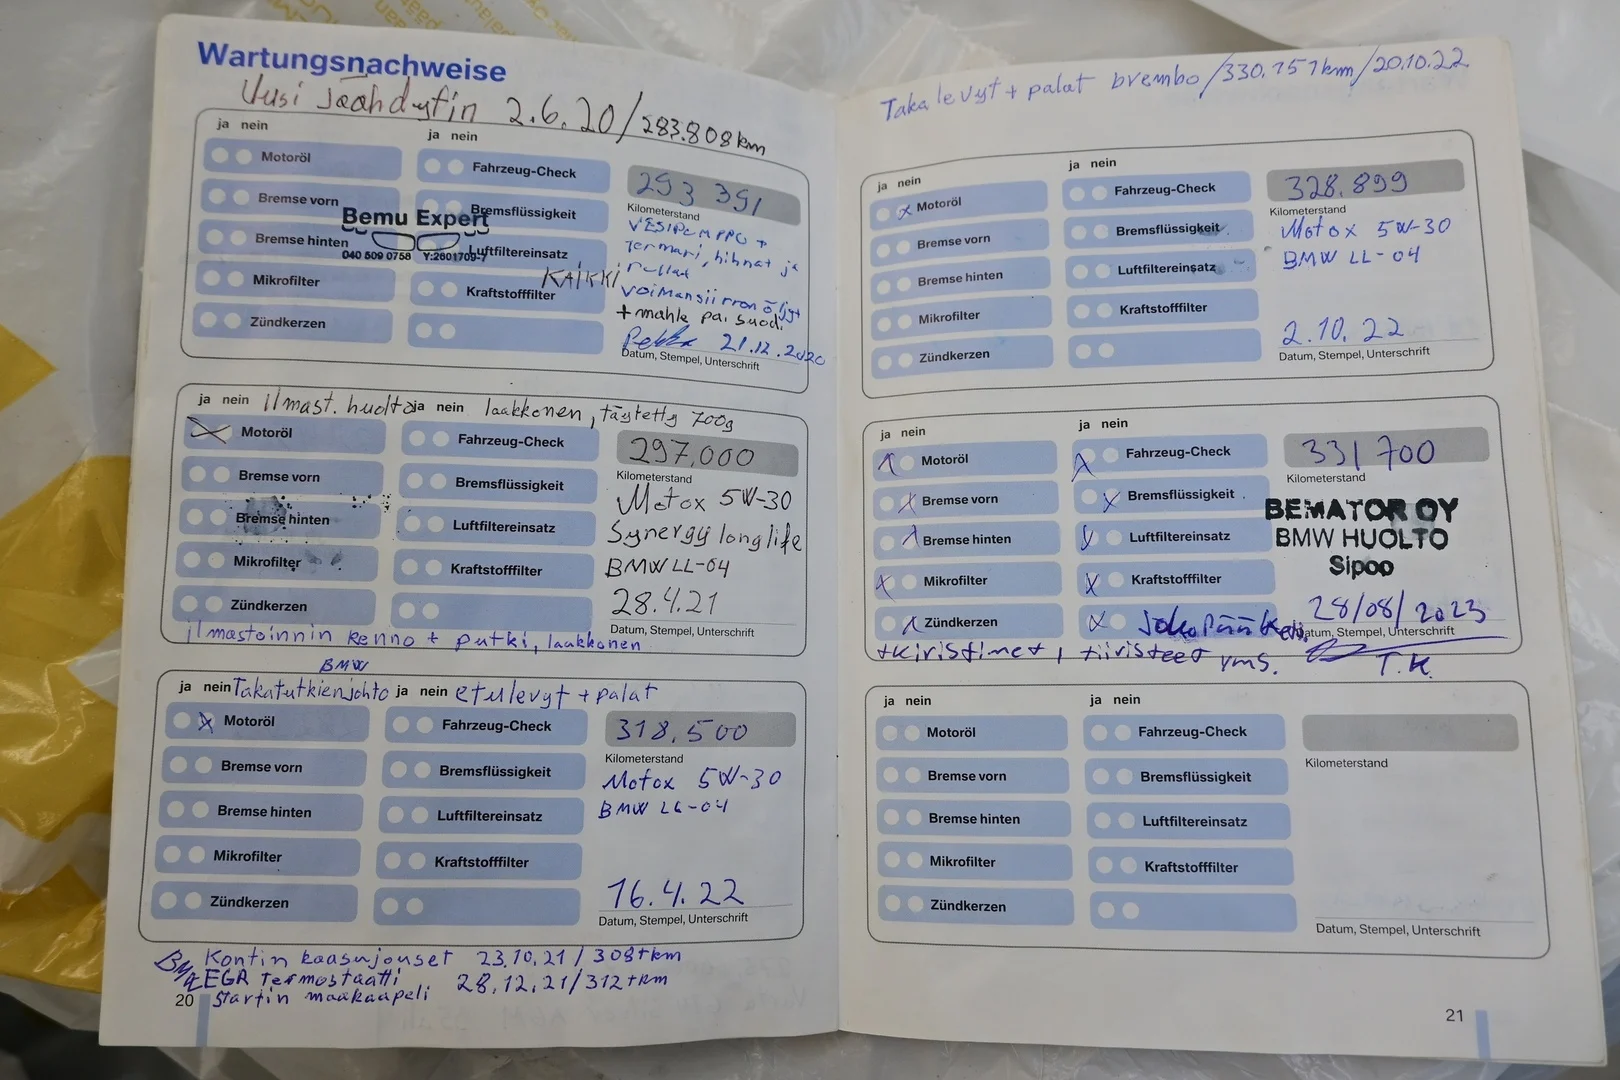 Wartungsnachweise
Uusi Jäähdytin 2.6.20/283.808km
ja nein
ja nein
Motoröl
Fahrzeug-Check
293 391
Bremse vorn
Bremsflüssigkeit
Kilometerstand
Bemu Expert
Bremse hinten
Luftfiltereinsatz
040 509 0758 Y:2601709-7
VESIPUMPPU +
Termari, hihnat ja
rullat
KAIKKI
Mikrofilter
Kraftstofffilter
voimansiirron öljyt
+ mahle pa. suod.
Zündkerzen
Pekka 21.12.2020
Datum, Stempel, Unterschrift
ja nein ilmast. huolto ja nein laakkonen, täytetty 700g
Motoröl
Fahrzeug-Check
297.000
Kilometerstand
Bremse vorn
Bremsflüssigkeit
Motox 5W-30
Bremse hinten
Luftfiltereinsatz
Synergy longlife
Mikrofilter
Kraftstofffilter
BMW LL-04
Zündkerzen
28.4.21
Datum, Stempel, Unterschrift
ilmastoinnin kenno + putki, laakkonen
BMW
ja nein Takatutkienjohto ja nein etulevyt + palat
Motoröl
Fahrzeug-Check
318.500
Kilometerstand
Bremse vorn
Bremsflüssigkeit
Motox 5W-30
Bremse hinten
Luftfiltereinsatz
BMW LL-04
Mikrofilter
Kraftstofffilter
Zündkerzen
16.4.22
Datum, Stempel, Unterschrift
Kontin kaasujouset 23.10.21/308tkm
BMW EGR Termostaatti 28.12.21/312tkm
startin maakaapeli
20
Takalevyt + palat brembo/330.757km/20.10.22
ja nein
ja nein
Motoröl
Fahrzeug-Check
328.899
Kilometerstand
Bremse vorn
Bremsflüssigkeit
Motox 5W-30
Bremse hinten
Luftfiltereinsatz
BMW LL-04
Mikrofilter
Kraftstofffilter
Zündkerzen
2.10.22
Datum, Stempel, Unterschrift
ja nein
ja nein
Motoröl
Fahrzeug-Check
331 700
Kilometerstand
Bremse vorn
Bremsflüssigkeit
BEMATOR OY
Bremse hinten
Luftfiltereinsatz
BMW HUOLTO
Mikrofilter
Kraftstofffilter
Sipoo
Zündkerzen
28/08/2023
Datum, Stempel, Unterschrift
+kiristimet, tiivisteet yms.
T.K.
ja nein
ja nein
Motoröl
Fahrzeug-Check
Kilometerstand
Bremse vorn
Bremsflüssigkeit
Bremse hinten
Luftfiltereinsatz
Mikrofilter
Kraftstofffilter
Zündkerzen
Datum, Stempel, Unterschrift
21